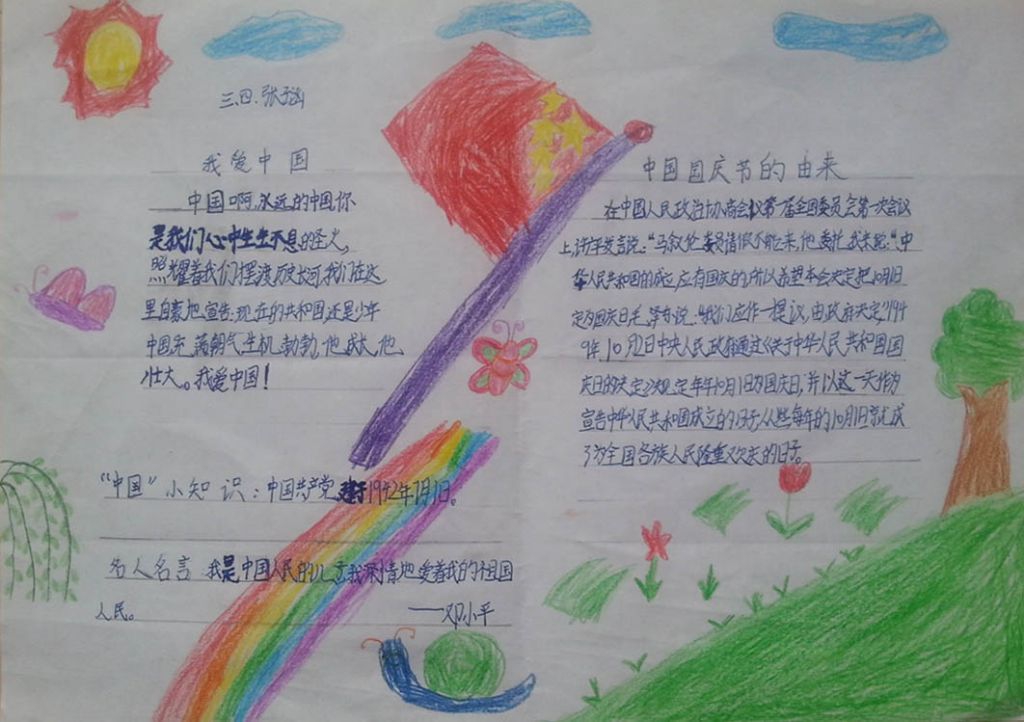 三.四.张涵
我爱中国
中国啊,永远的中国你
是我们心中生生不息的圣火,
照耀着我们摆渡历史长河,我们在这
里自豪地宣告:现在的共和国还是少年
中国充满朝气生机勃勃,他成长,他
壮大。我爱中国!
"中国"小知识:中国共产党建于1942年7月1日。
名人名言 我是中国人民的儿子我深情地爱着我的祖国
人民。
——邓小平
中国国庆节的由来
在中国人民政治协商会议第一届全国委员会第一次会议
上,许广平发言说:"马叙伦委员请假不能来,他委托我来说:"中
华人民共和国的成立,应有国庆日,所以希望本会决定把10月1日
定为国庆日毛泽东说"我们应作一提议,由政府决定,"194
9年10月2日中央人民政府通过《关于中华人民共和国国
庆日的决定》规定每年10月1日为国庆日,并以这一天作为
宣告中华人民共和国成立的日子,从此每年的10月1日就成
了为全国各族人民隆重欢庆的日子。